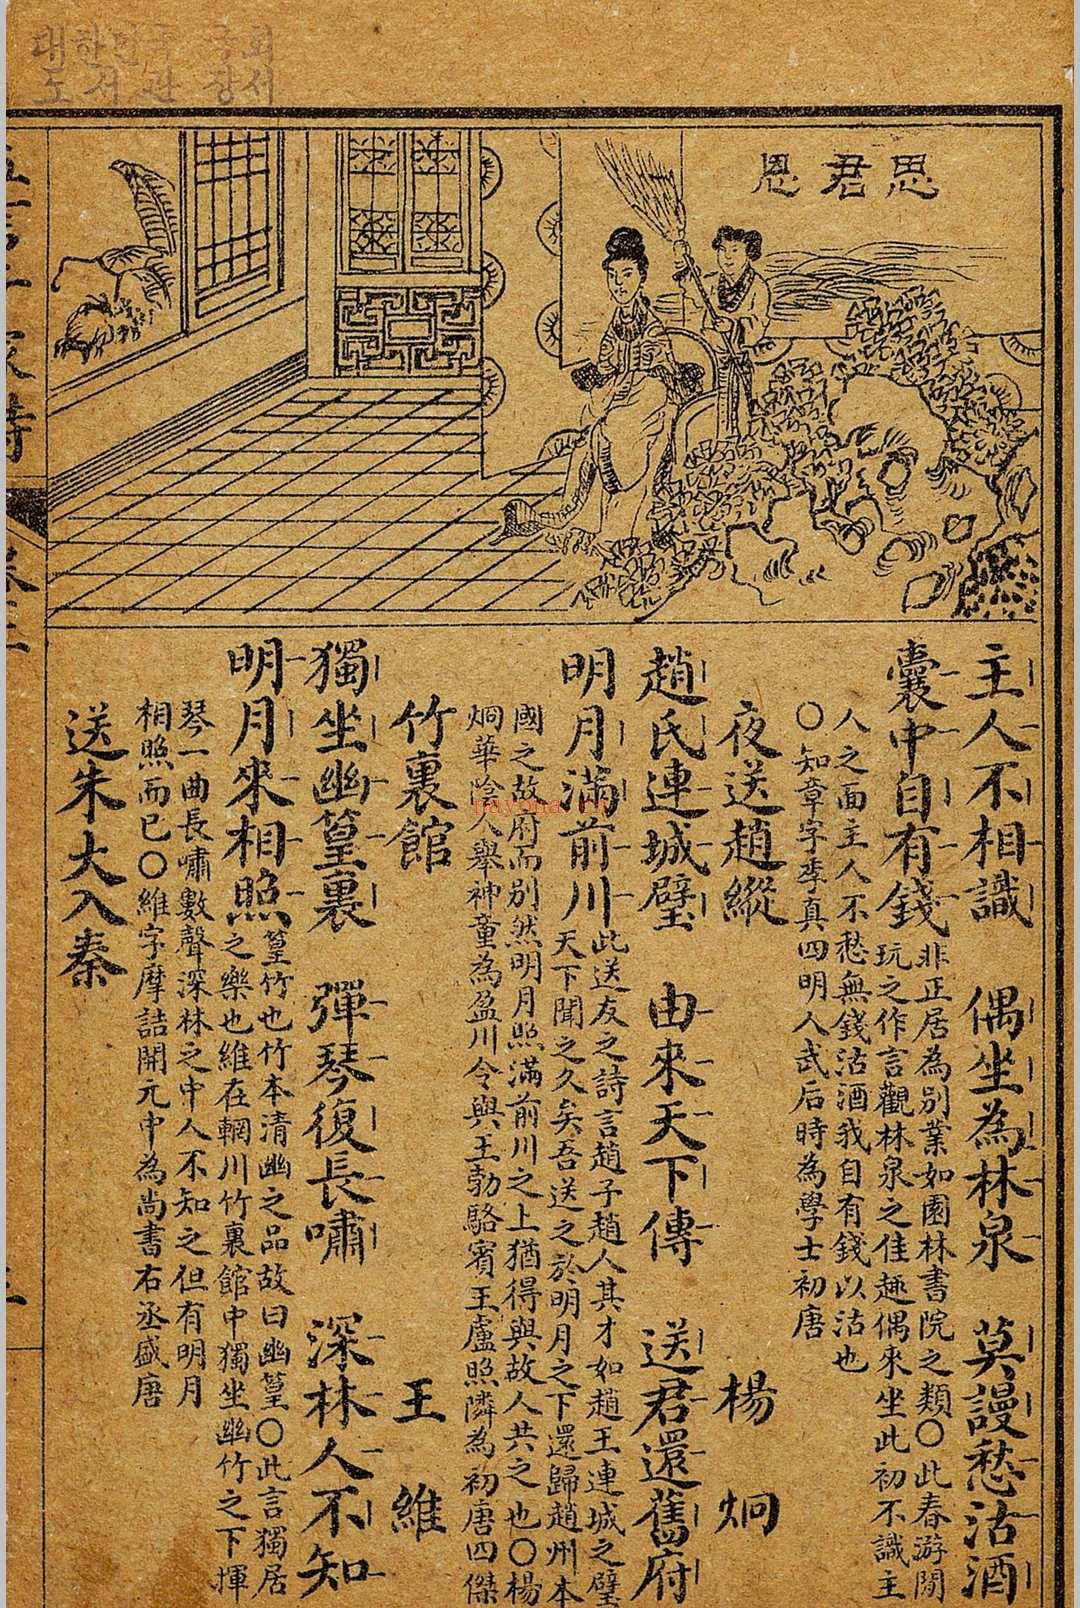 대한민국 국회
도서관 장서
思君恩
主人不相識 偶坐為林泉 莫謾愁沽酒
囊中自有錢 非正居為別業如園林書院之類〇此春游閒
玩之作言觀林泉之佳趣偶來坐此初不識主
人之面主人不愁無錢沽酒我自有錢以沽也
〇知章字季真四明人武后時為學士初唐
夜送趙縱 楊炯
趙氏連城璧 由來天下傳 送君還舊府
明月滿前川 此送友之詩言趙子趙人其才如趙王連城之璧
天下聞之久矣吾送之於明月之下還歸趙州本
國之故府而別然明月照滿前川之上猶得與故人共之也〇楊
炯華陰人舉神童為盈川令與王勃駱賓王盧照隣為初唐四傑
竹裏館 王維
獨坐幽篁裏 彈琴復長嘯 深林人不知
明月來相照 篁竹也竹本清幽之品故曰幽篁〇此言獨居
之樂也維在輞川竹裏館中獨坐幽竹之下揮
琴一曲長嘯數聲深林之中人不知之但有明月
相照而已〇維字摩詰開元中為尚書右丞盛唐
送朱大入秦